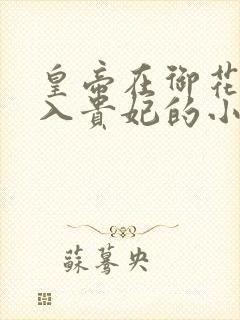 皇帝在御花
入贵妃的小
苏蓦央